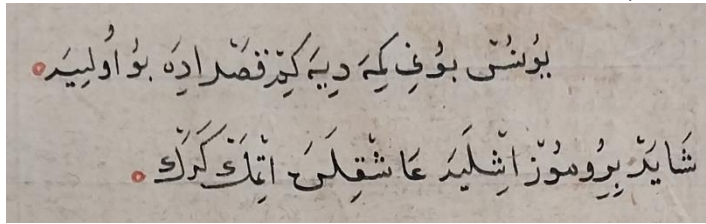 يُونُسْ بُونِ كِمَه دِيَه كِمْ قَصْد ادِه بُو اُولِييَه
شَايَدْ بِرُومُوزْ اِشِلَيَه عَاشْقِلَرَ اتِمَكْ كَرَكْ